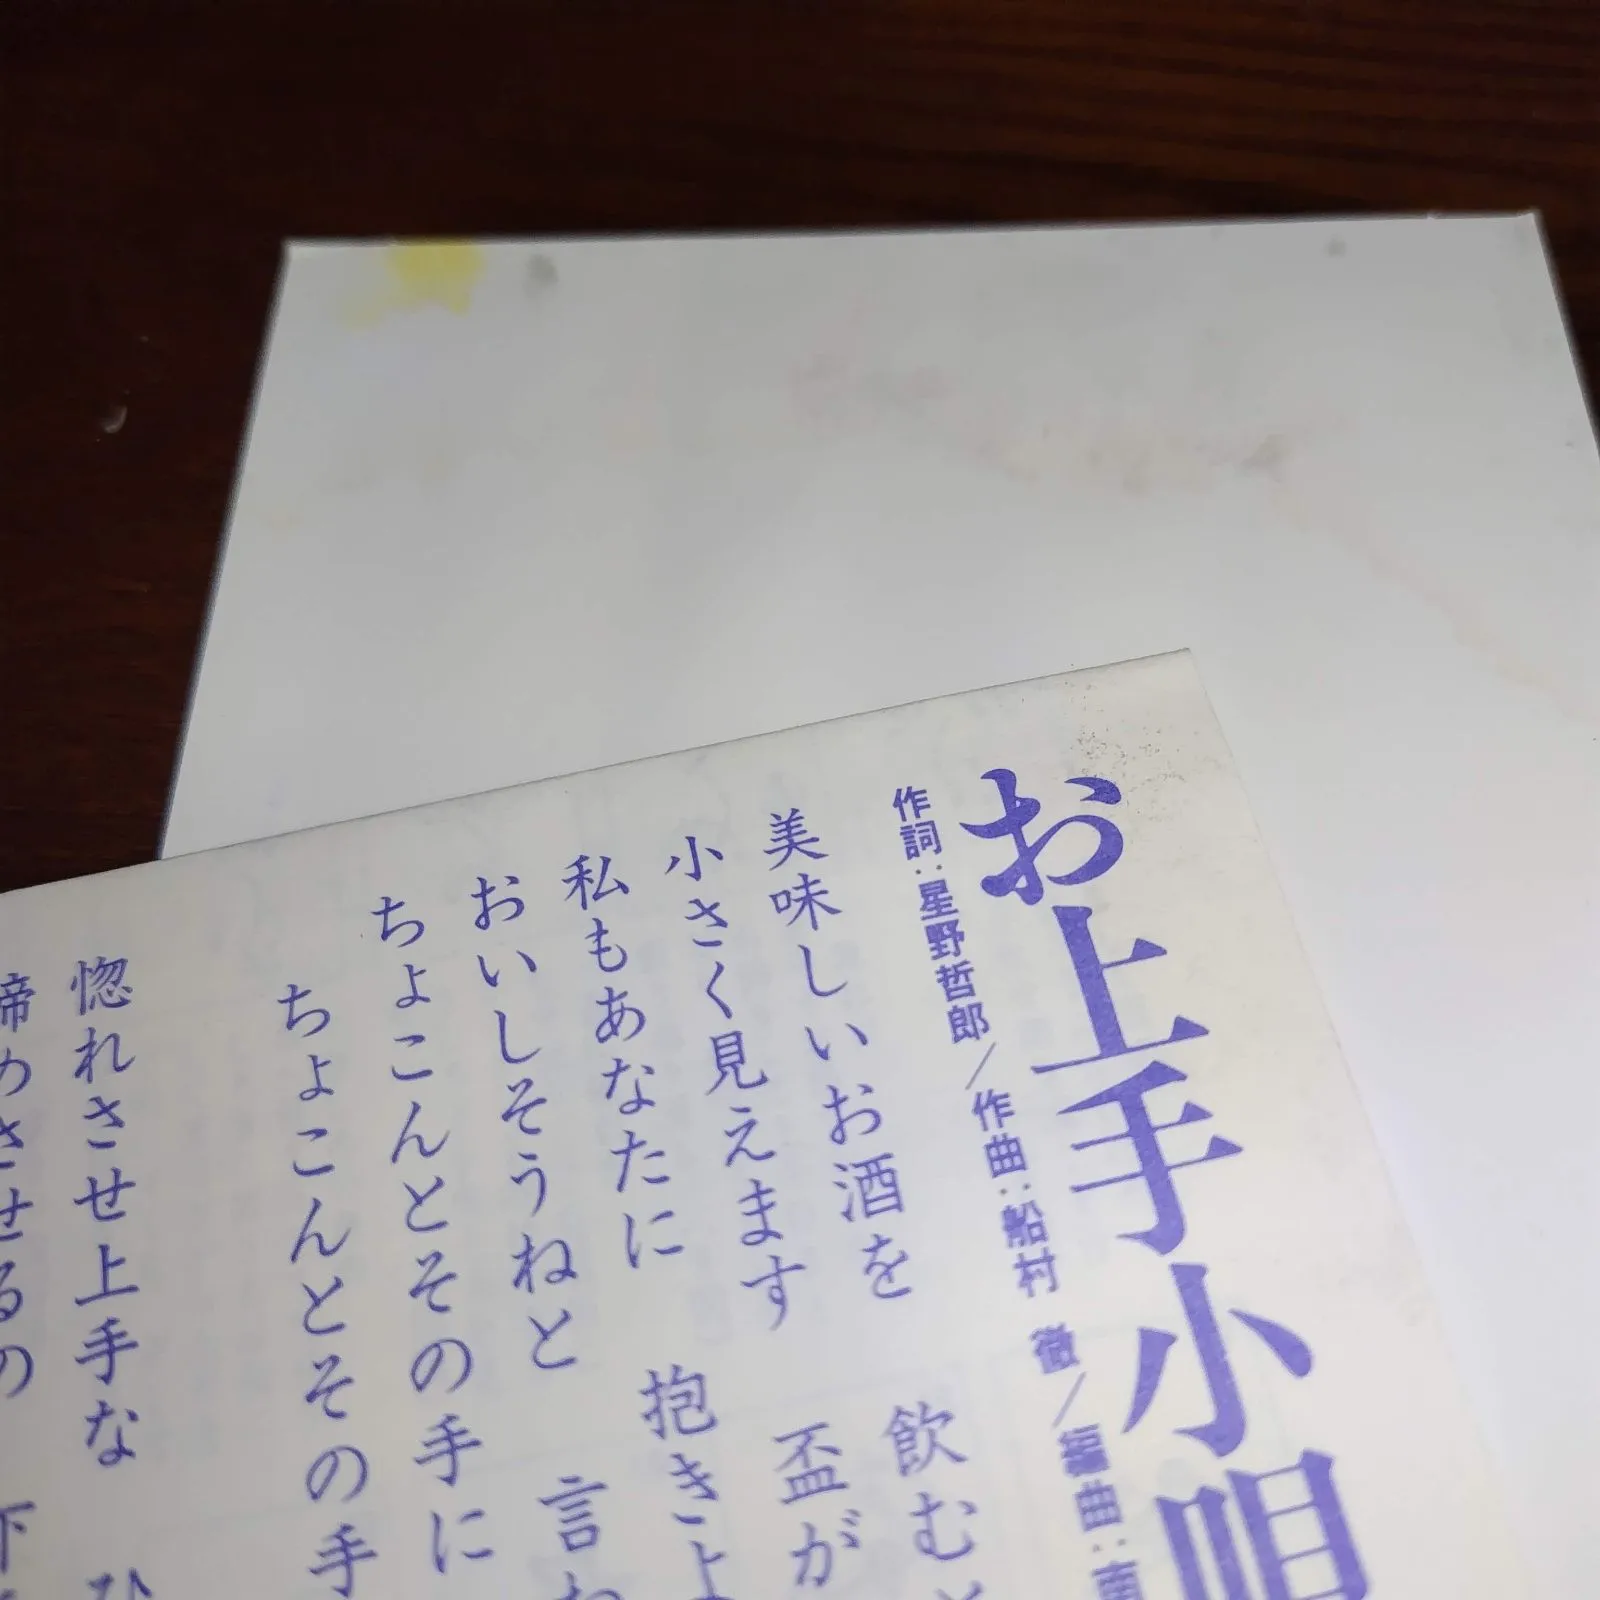 お上手小唄
作詞：星野哲郎／作曲：船村 徹／編曲：南
美味しいお酒を 飲むと
小さく見えます 盃が
私もあなたに 抱きよ
おいしそうねと 言わ
ちょこんとその手に
ちょこんとその手
惚れさせ上手な ひ
諦めさせるの 下